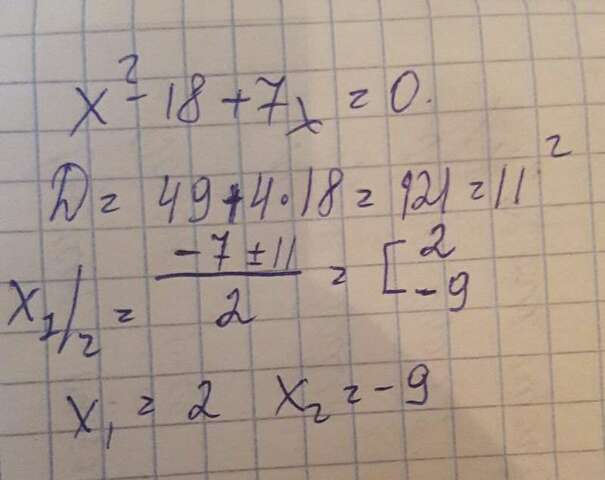 x² - 18 + 7x = 0.
D = 49 + 4·18 = 121 = 11²
x₁/₂ = (-7 ± 11)/2 = [2 -9
x₁ = 2 x₂ = -9